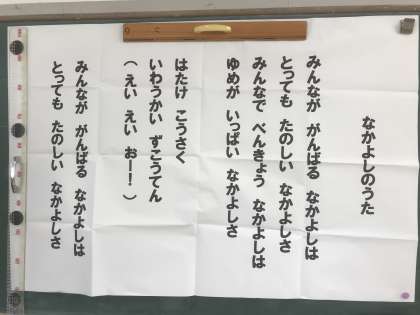 なかよしのうた
みんなが がんばる なかよしは
とっても たのしい なかよしさ
みんなで べんきょう なかよしは
ゆめが いっぱい なかよしさ
はたけ こうさく
いわうかい ずこうてん
（ えい えい おー！ ）
みんなが がんばる なかよしは
とっても たのしい なかよしさ